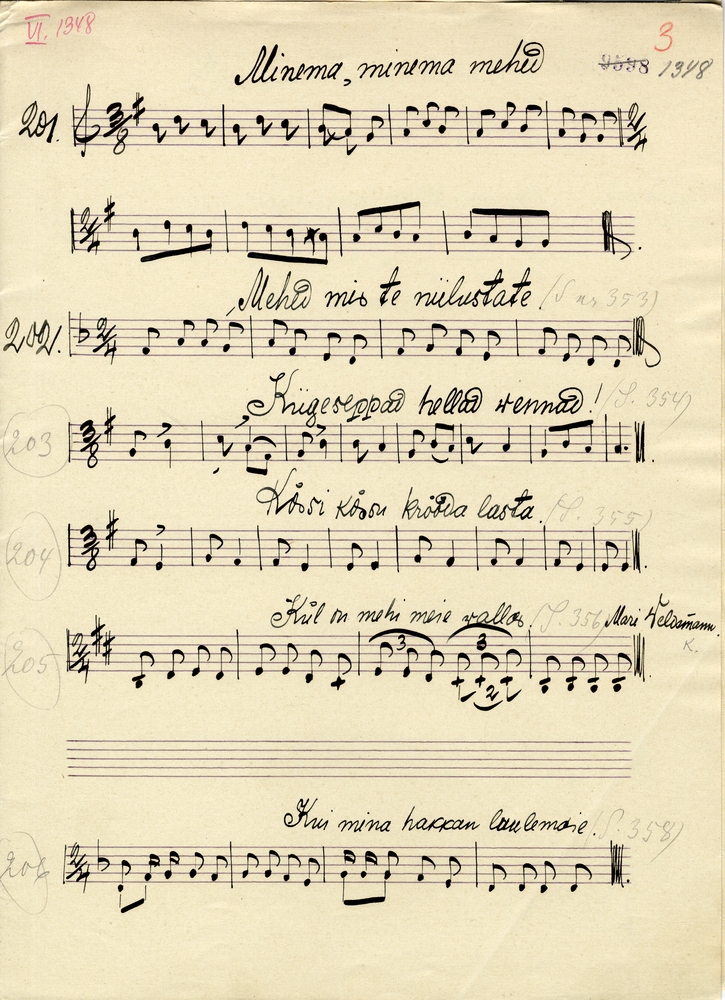 VI. 1348
3
9598 1348
Minema, minema mehed
201.
3/8
2/4
2/4
Mehed mis te niilustate. (S nr 353)
202.
2/4
Kiigeseppad hellad wennad! (S. 354)
203
3/8
Kőssi kőssu krőőda lasta. (S. 355)
204
3/8
Kűl on mehi meie wallas. (S. 356) Mari Weldemann.
K.
205
2/4
3 3
2
Kui mina hakkan laulemaie. (S. 358)
206
2/4